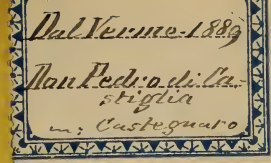 Dal Verme. 1889
Don Pedro di Ca-
stiglia
m; Castegnaro